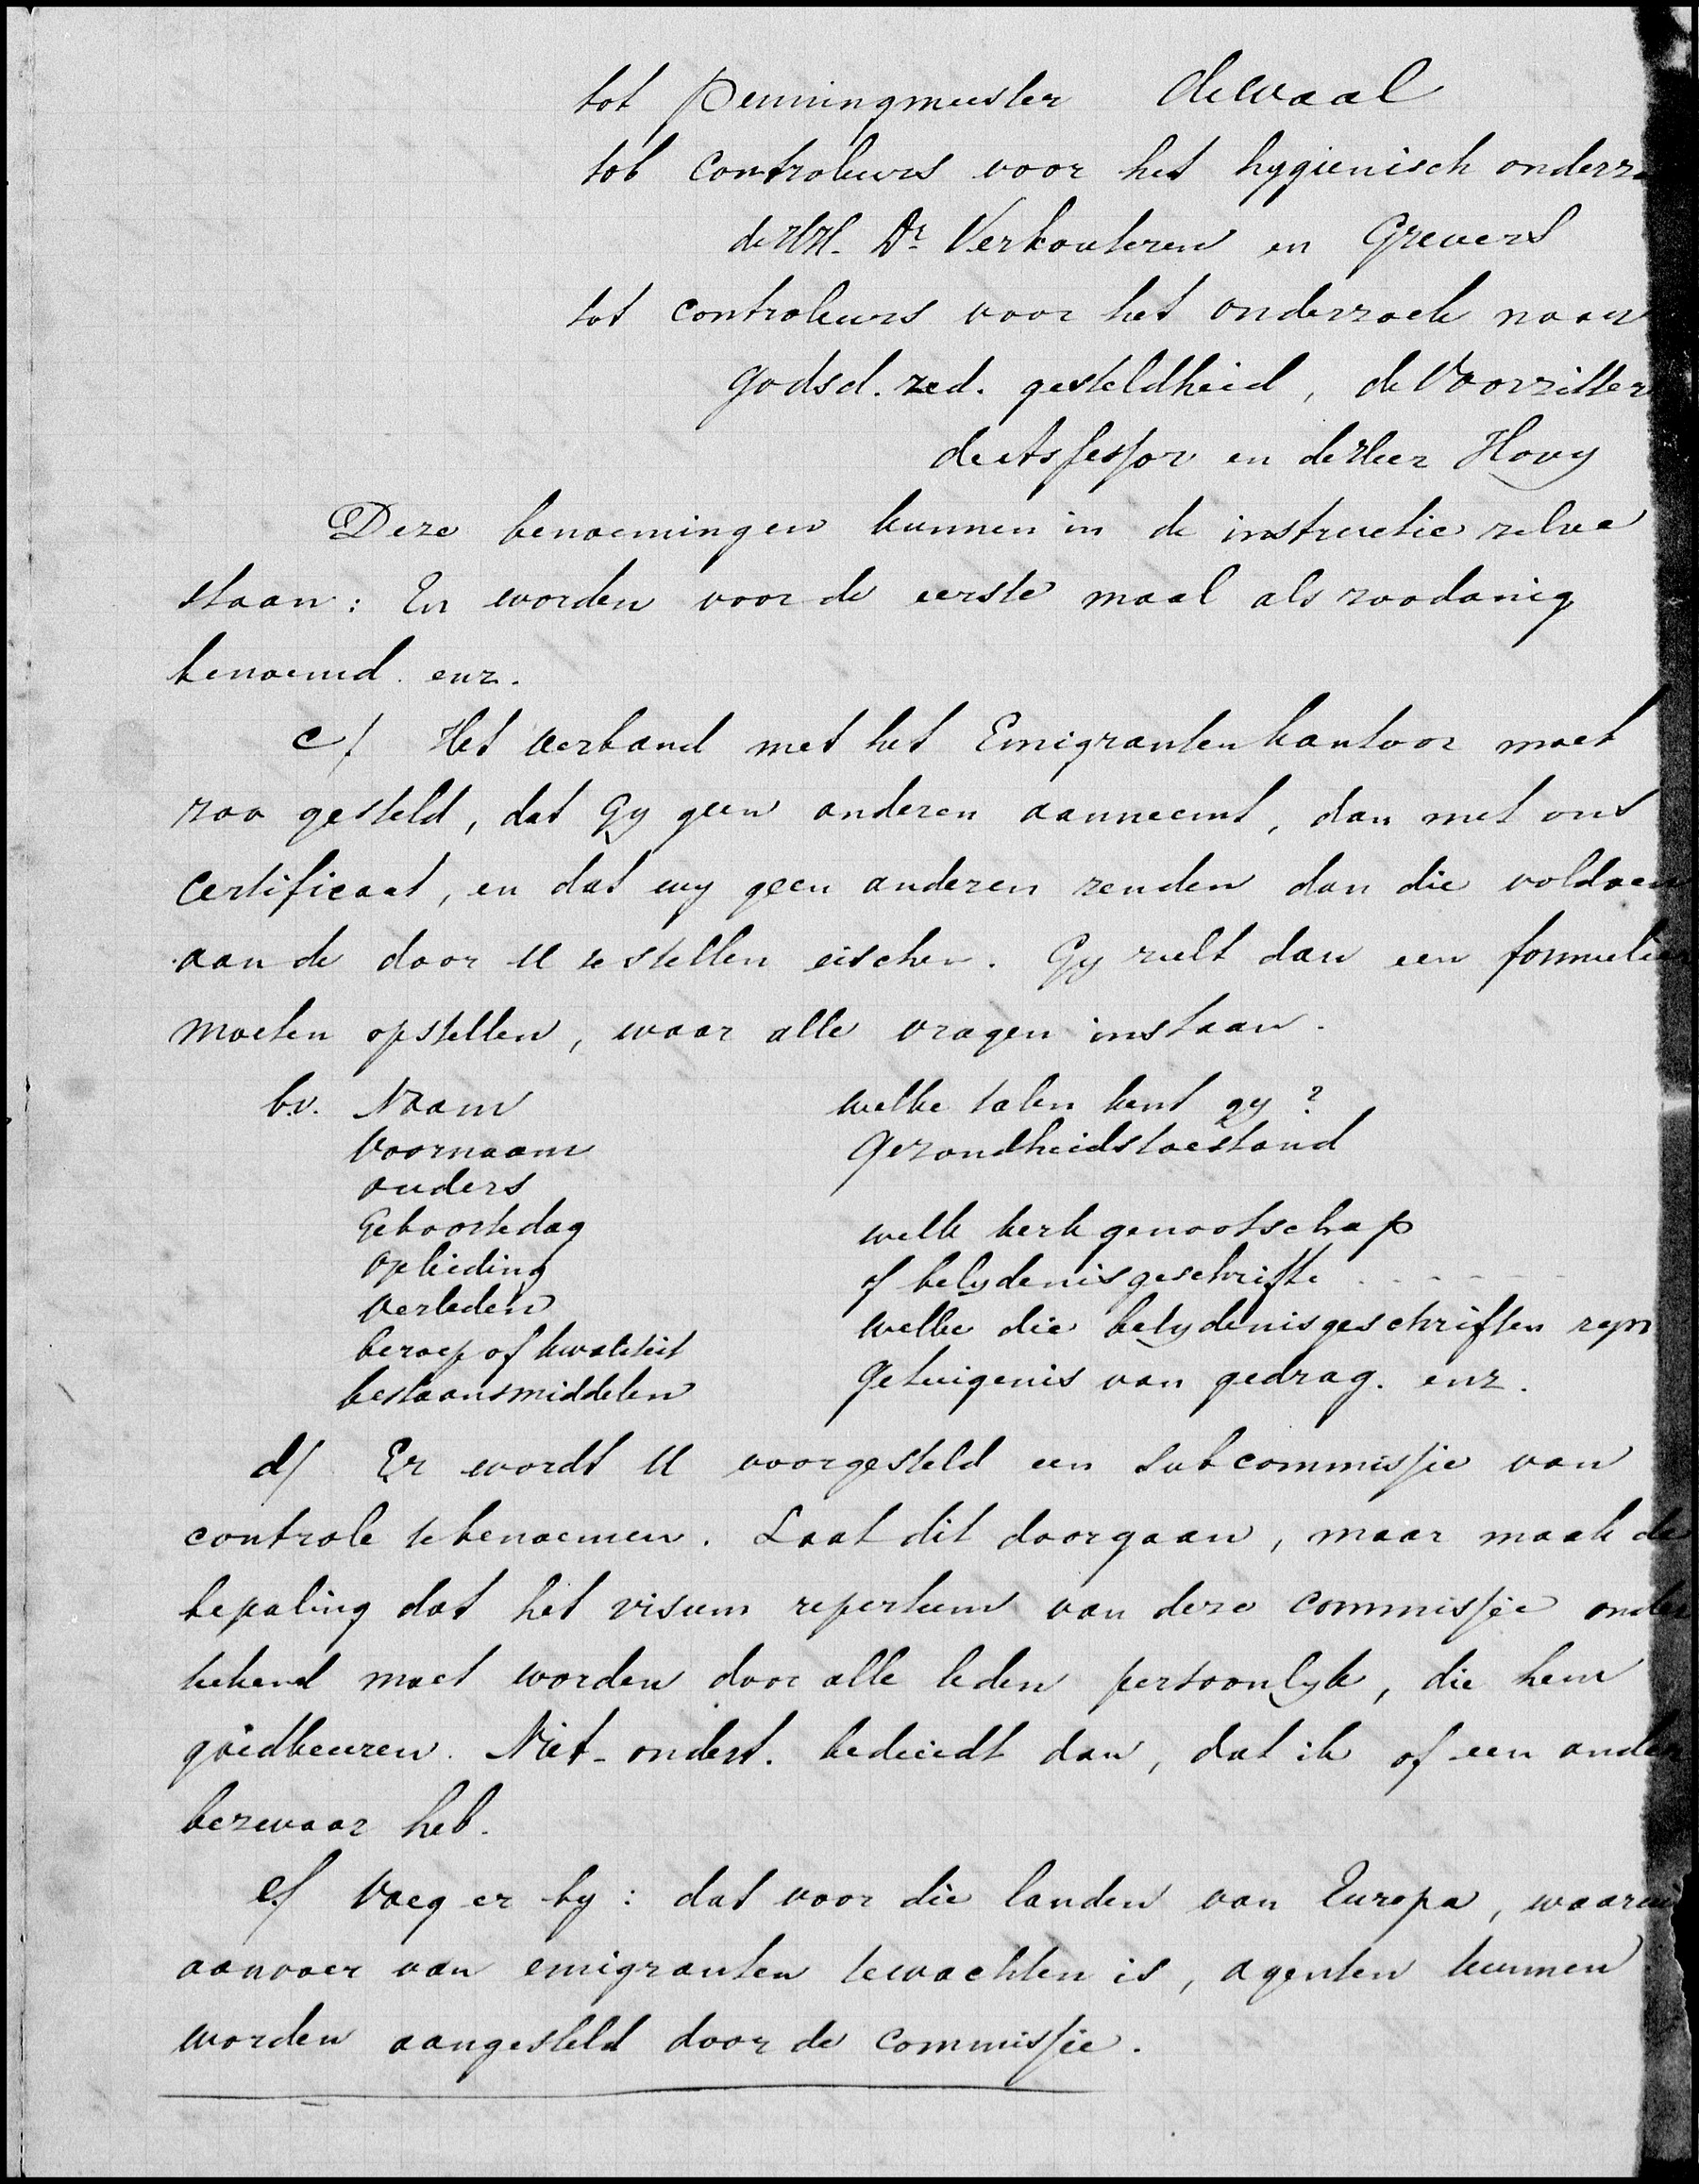 tot Penningmeester de Waal
tot Controleurs voor het hygienisch onderzo
de HH. Dr Verkouteren en Grevers
tot controleurs voor het onderzoek naar
godsd. zed. gesteldheid, de Voorzitter
de Assessor en de Heer Hovy
Deze benoemingen kunnen in de instructie zelve
staan: En worden voor de eerste maal als zoodanig
benoemd enz.
c/ Het verband met het Emigrantenkantoor moet
zoo gesteld, dat Gy geen anderen aanneemt, dan met ons
Certificaat, en dat wy geen anderen zenden dan die voldoen
aan de door U te stellen eischen. Gy zult dan een formulier
moeten opstellen, waar alle vragen instaan.
b.v. Naam welke talen kent gy?
Voornaam Gezondheidstoestand
ouders
Geboortedag welk kerkgenootschap
opleiding of belydenisgeschrifte - - - - -
verleden welke die belydenisgeschriften zyn
beroep of kwaliteit Getuigenis van gedrag. enz.
bestaansmiddelen
d/ Er wordt U voorgesteld een Subcommissie van
controle te benoemen. Laat dit doorgaan, maar maak de
bepaling dat het visum repertum van deze commissie onder
tekend moet worden door alle leden persoonlyk, die hem
goedkeuren. Niet-ondert. bediedt dan, dat ik of een ander
bezwaar heb.
e/ Voeg er by: dat voor die landen van Europa, waarui
aanvoer van emigranten te wachten is, agenten kunnen
worden aangesteld door de commissie.